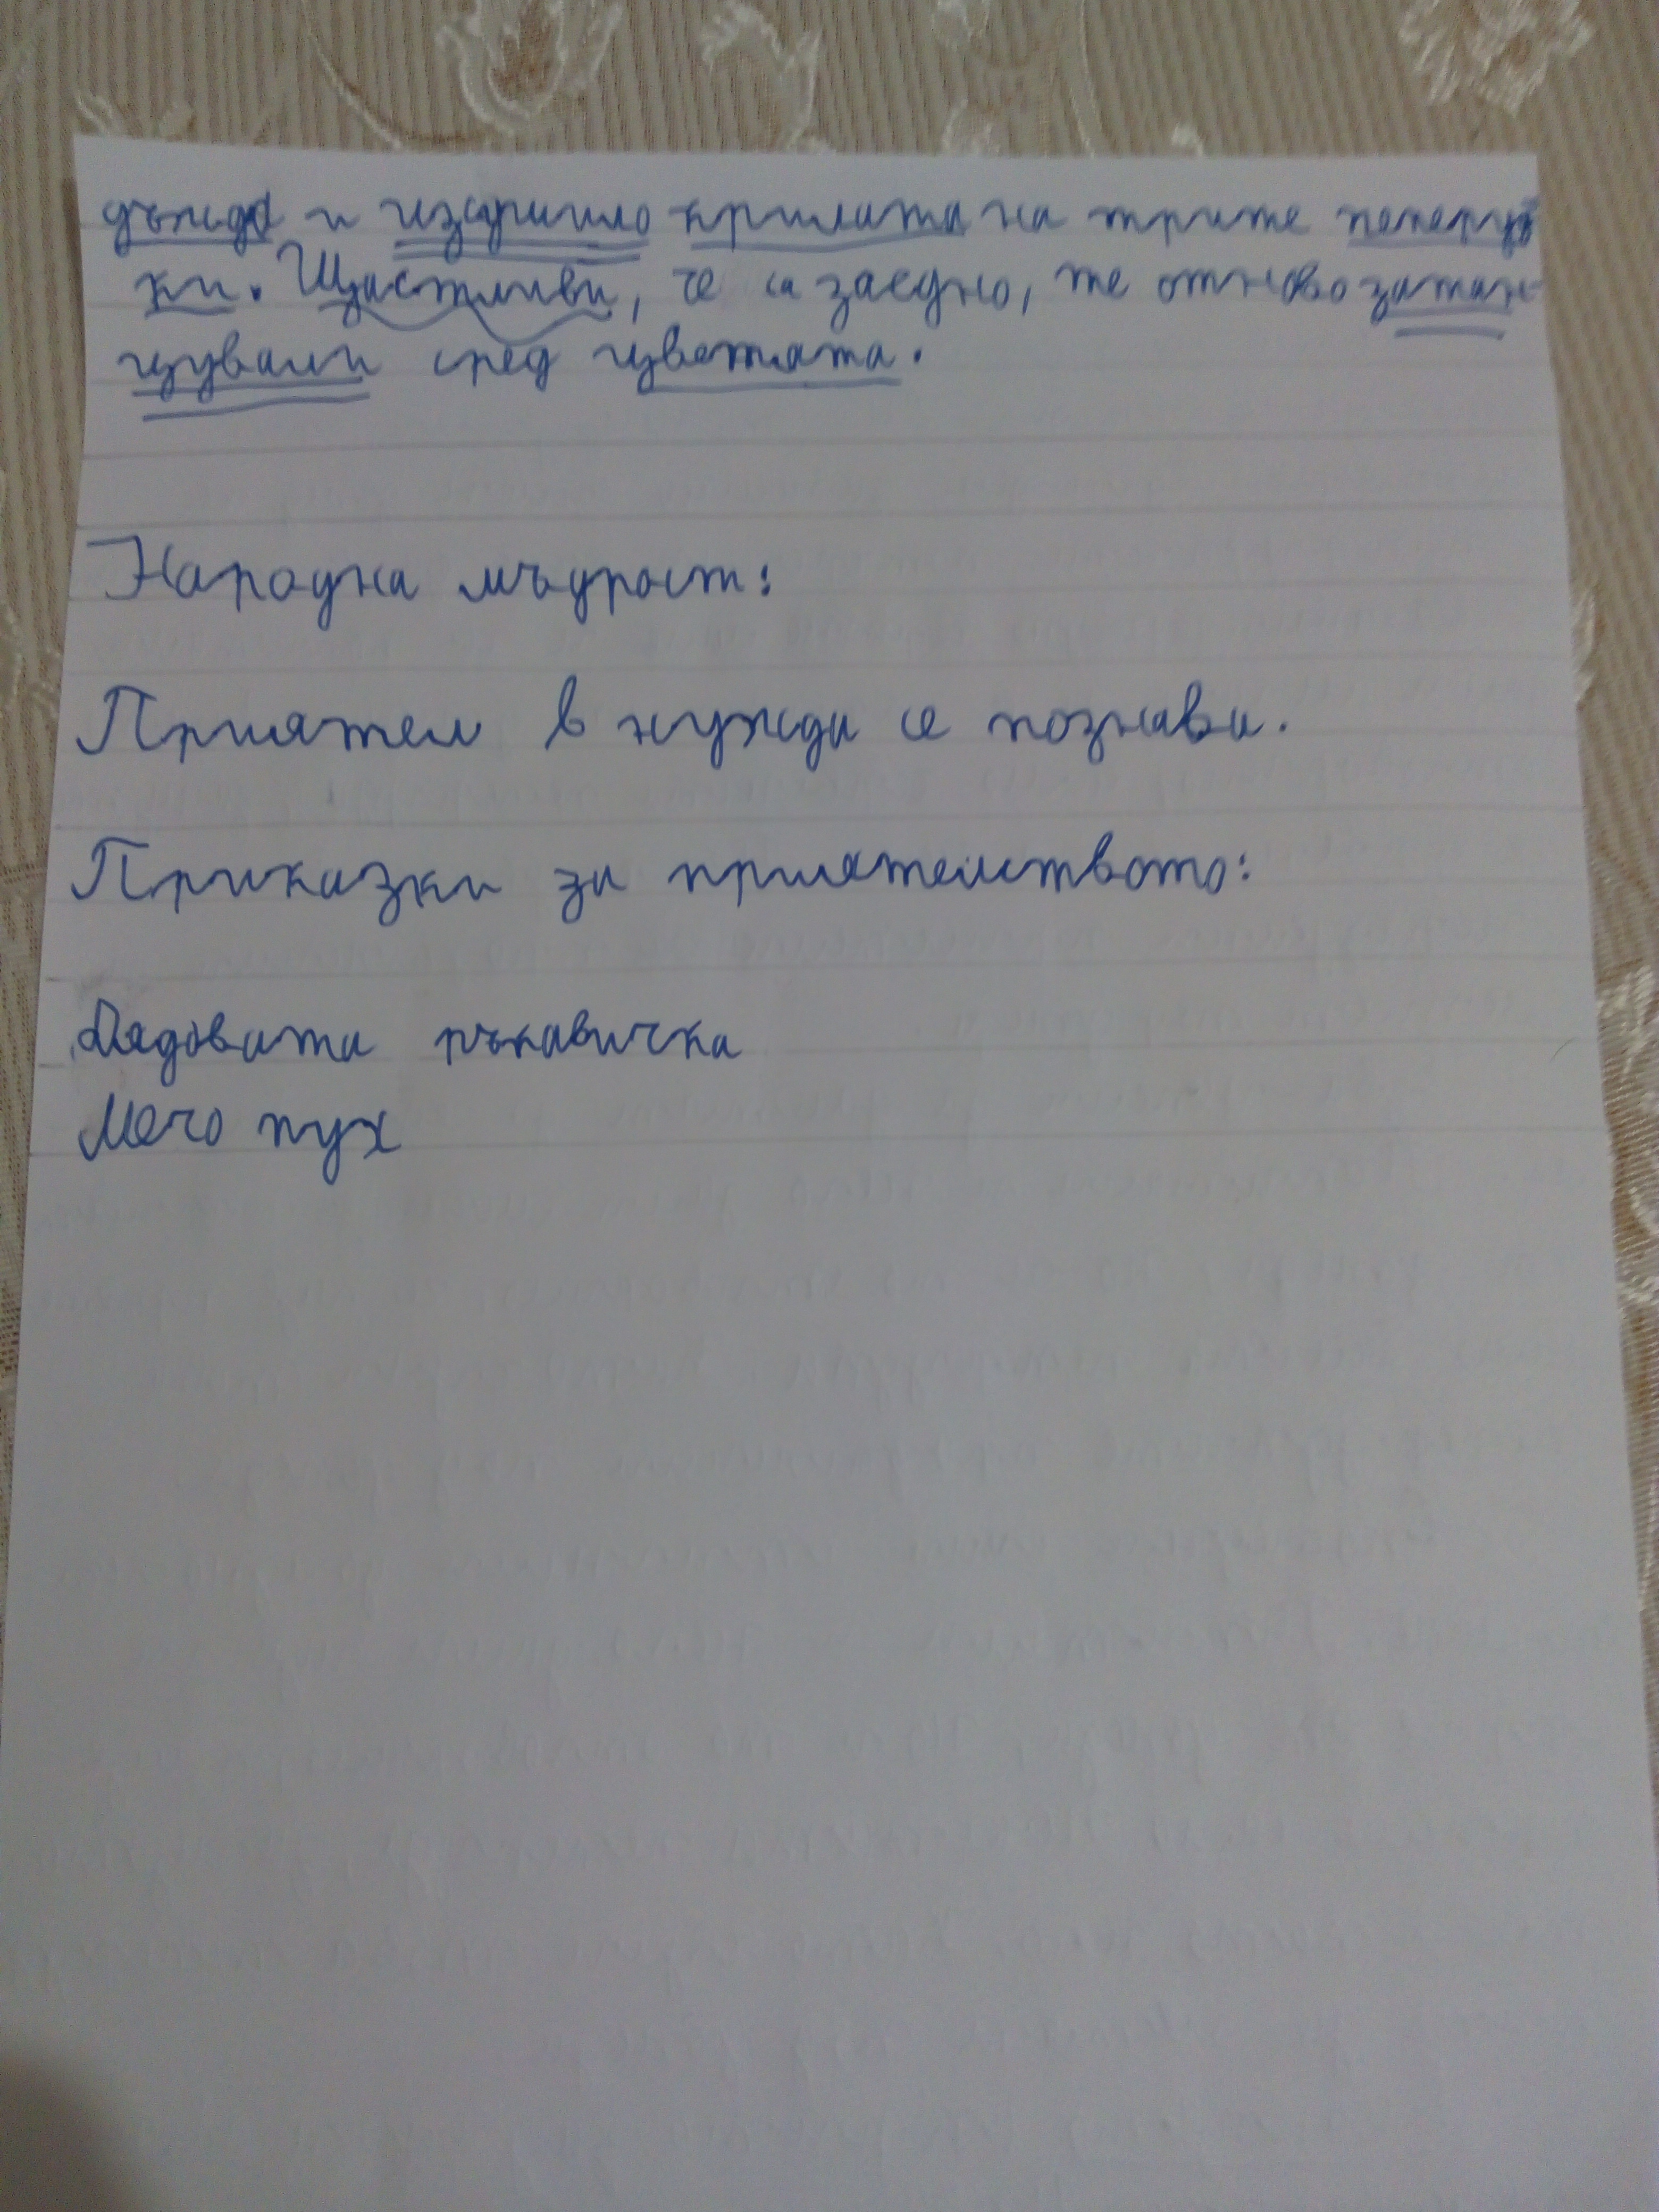 дъжда и изсушило крилата на трите пеперуд
ки. Щастливи, че са заедно, те отново затан-
цували сред цветята.
Народна мъдрост:
Приятел в нужда се познава.
Приказки за приятелството:
Дядовата ръкавичка
Мечо пух